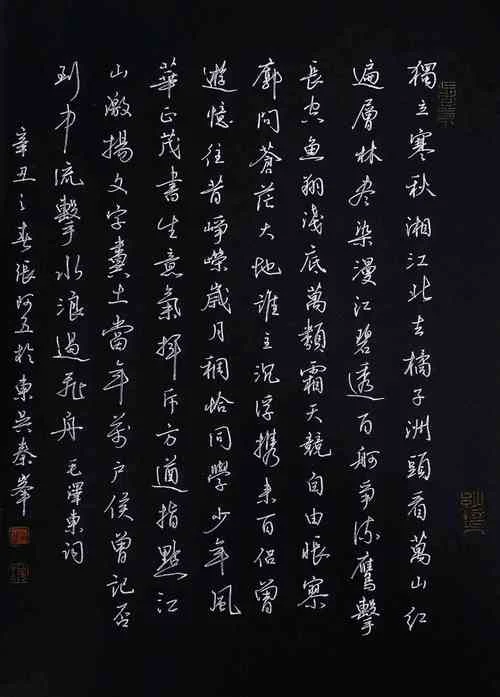 獨立寒秋湘江北去橘子洲頭看萬山紅
遍層林盡染漫江碧透百舸爭流鷹擊
長空魚翔淺底萬類霜天競自由悵寥
廓問蒼茫大地誰主沉浮携來百侣曾
遊憶往昔崢嶸歲月稠恰同學少年風
華正茂書生意氣揮斥方遒指點江
山激揚文字糞土當年萬戶侯曾記否
到中流擊水浪遏飛舟 毛澤東詞
辛丑之春張阿五於東吳秦峯